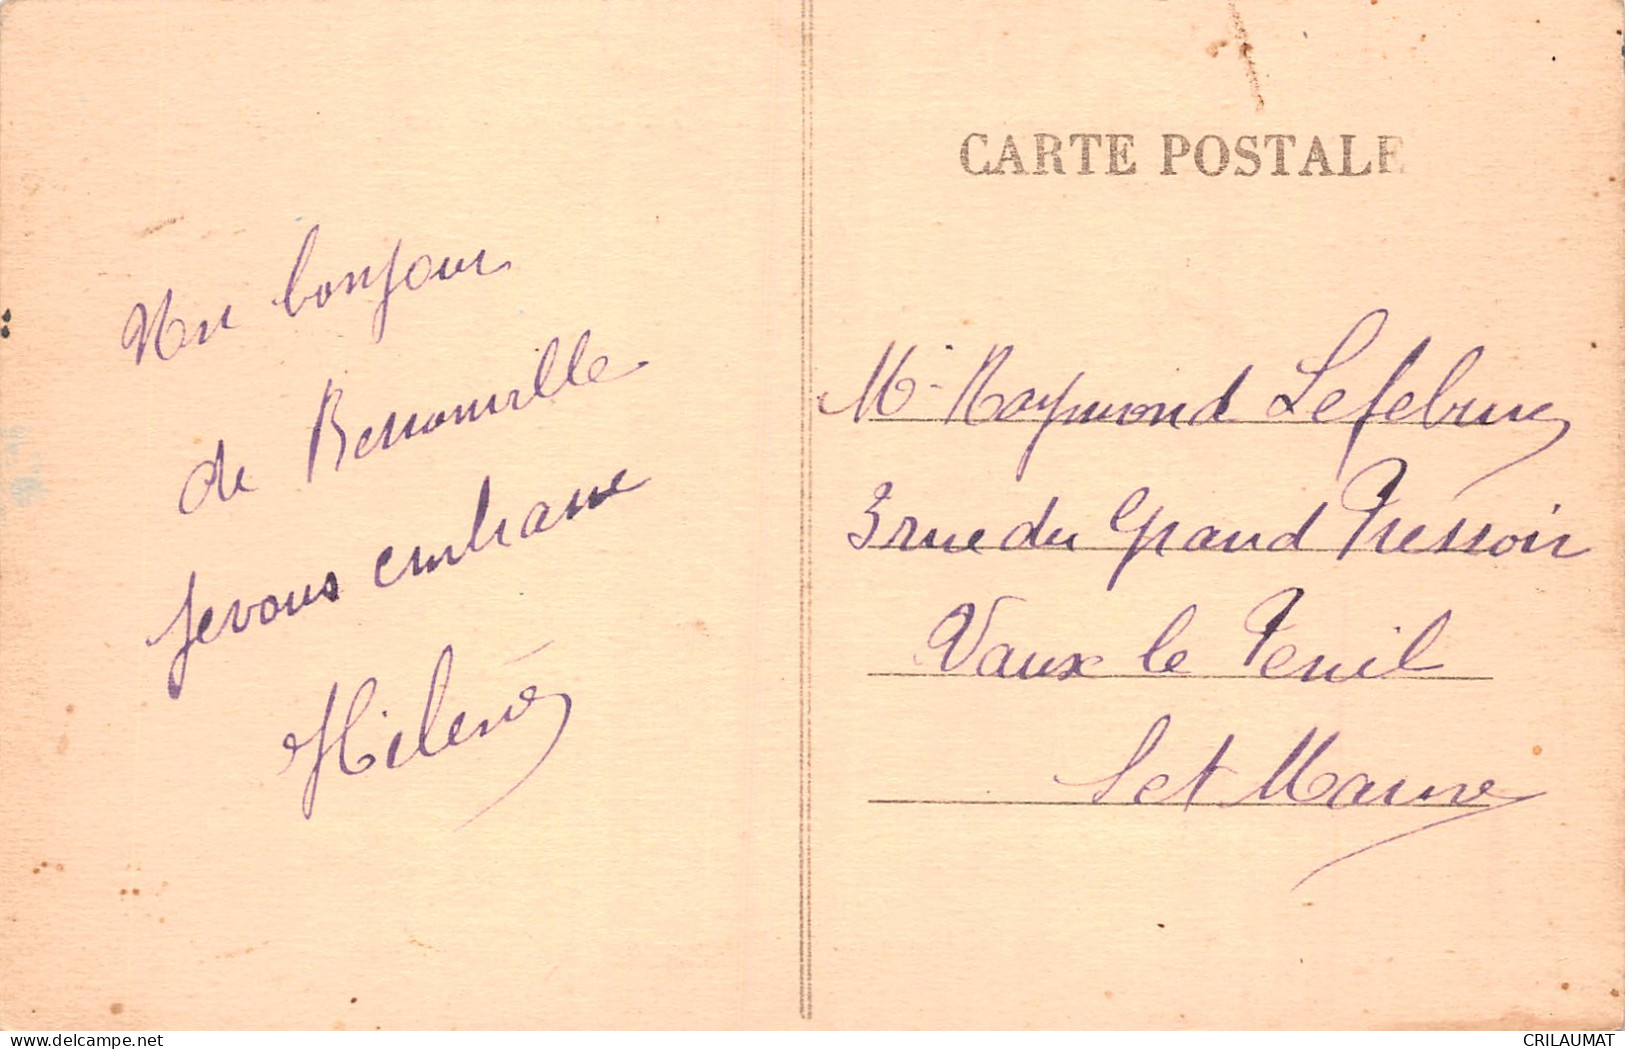 CARTE POSTALE
Un bonjour
de Bessonville
Je vous embrasse
Hélène
Mr Raymond Lefebvre
3 rue du Grand Pressoir
Vaux le Penil
Set Marne
delcampe.net
CRILAUMAT